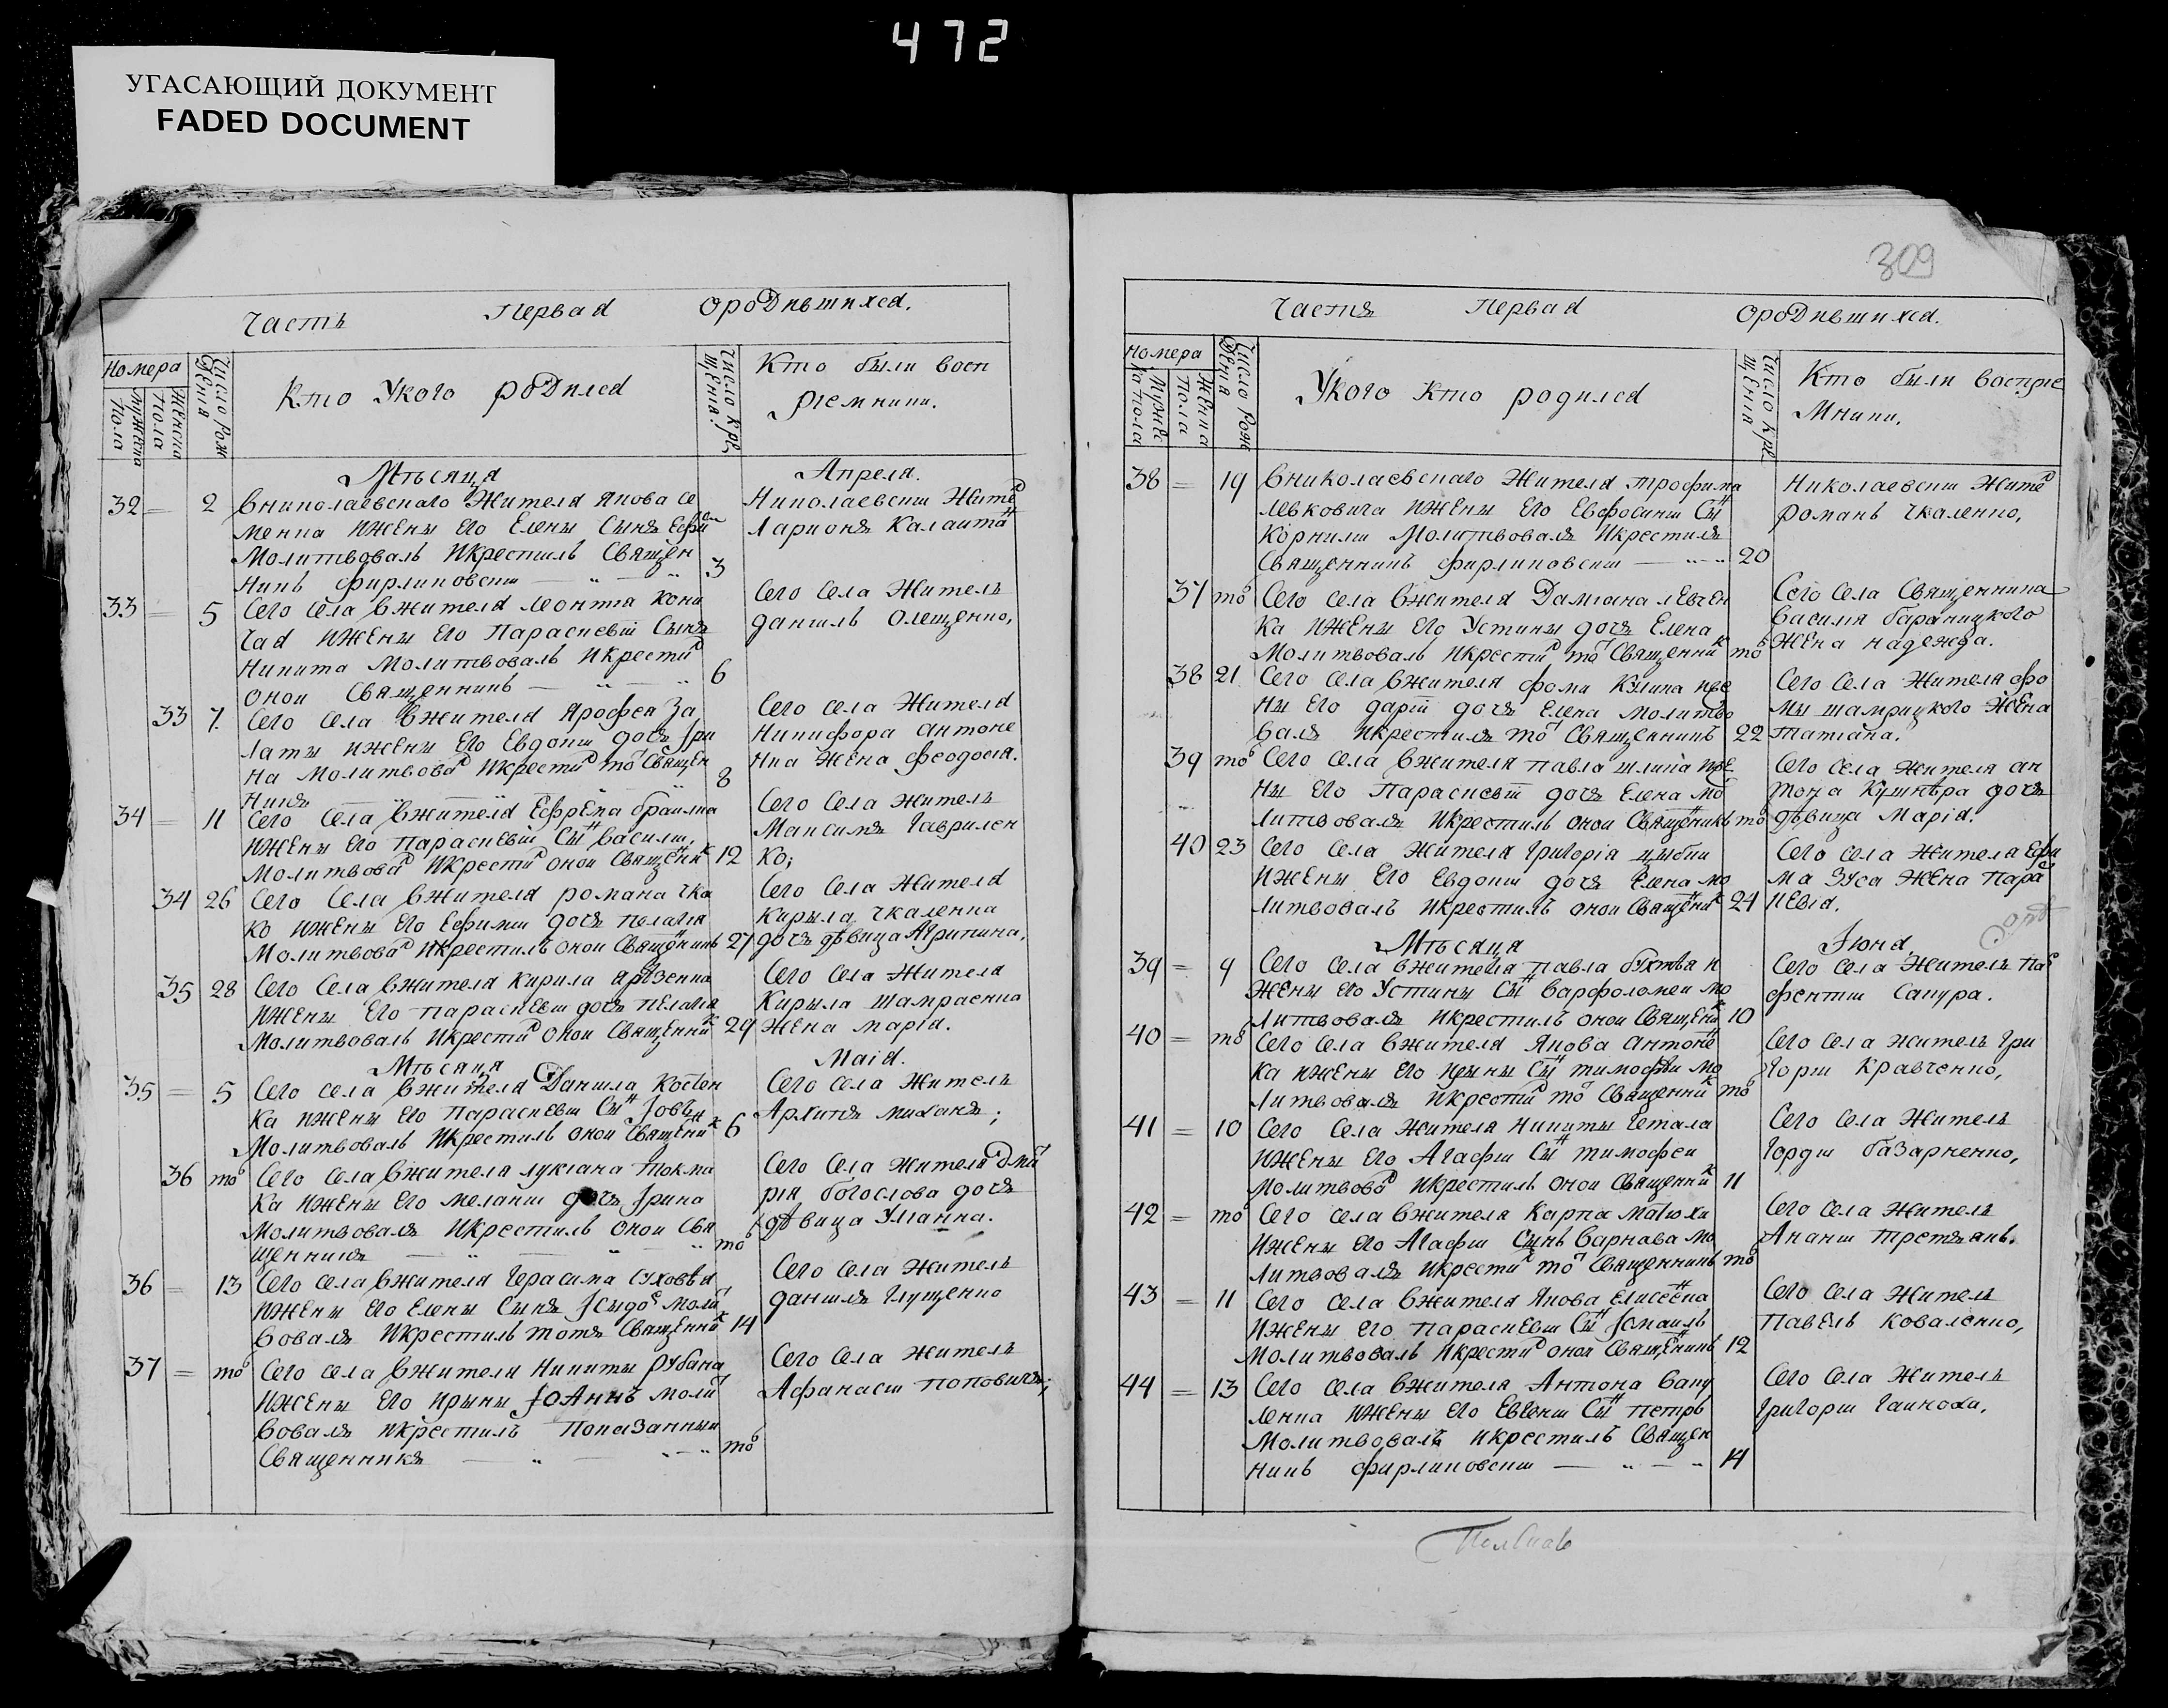 472
УГАСАЮЩИЙ ДОКУМЕНТ
FADED DOCUMENT
Часть Первая ороДившихся.
Номера
мужеска Пола
женска Пола
Число рож дения
Кто Укого роДился
Число кре щения
Кто были восп
риемники.
Мѣсяца Апреля.
32 2 Вниколаевскаго Жителя Якова Се
менка ИЖены Его Елены Сынъ Ефи
Молитвовалъ Икрестилъ Священ
никъ фирликовски 3
Николаевски Жите
Ларионъ Калаита
33 5 Сего Села вжителя леонтия кони
чая ИЖены Его Параскевы Сынъ
Никита Молитвовалъ Икрести
онои Священникъ 6
Сего Села Житель
даниилъ Олещенко,
33 7 Сего Села Вжителя Ярофея За
латы ижены Его Евдоки дочь Iри
на Молитвова Икрести то Священ
никъ 8
Сего Села Жителя
Никифора Антоне
нка Жена феодосия.
34 11 Сего Села вжителя Ефрема браилка
ИЖены Его Параскевы Сы Василии,
Молитвова Икрести онои Священи 12
Сего Села житель
Максимъ Гаврилен
ко;
34 26 Сего Села вжителя романа чка
ко ижены Его Ефимии дочь пелагия
Молитвова Икрестилъ онои Священикъ 27
Сего Села Жителя
Кирыла чкаленка
дочь дѣвица Агрипина,
35 28 Сего Села вжителя Кирила ярозенка
Ижены Его параскевии дочь пелагия
Молитвовалъ Икрести онои Священни 29
Сего Села Жителя
Кирыла шамраенка
Жена марiя.
Мѣсяца Маiя.
35 5 Сего села Вжителя Даниила Костен
ка ижены Его параскевии Сы Iовъ
Молитвовалъ Икрестилъ онои Священи 6
Сего Села Житель
Архипъ миханя;
36 то Сего села вжителя лукiана токма
ка ижены Его меланки дочь Iрина
Молитвовалъ Икрестилъ онои Свя
щенникъ то
Сего Села жителя Дми
рiя богослова дочь
дѣвица Улианна.
36 13 Сего села вжителя Герасима суховѣя
ИЖены Его Елены Сынъ Iсидо моли
вовалъ Икрестилъ тотъ Священни 14
Сего Села Житель
даниилъ Глущенко
37 то Сего села вжителя Никиты рубана
ИЖены Его Ирыны IоАннъ моли
вовалъ икрестилъ Показанныи
Священникъ то
Сего Села житель
Афанаси поповичъ;
309
Частъ Первая ороДившихся.
Номера
Мужеска пола
Женска Пола
Число рож дения
Укого кто родился
Число кре щения
Кто были воспрiе
Мники.
38 19 Вниколаевскаго Жителя трофима
левковича ижены Его Евфросинии Сы
Корнили Молитвовалъ Икрестилъ
Священникъ фирликовски 20
Николаевски Жите
романъ чкаленко,
37 то Сего села вжителя Дамiана левчен
ка ижены Его Устины дочь Елена
Молитвовалъ Икрести то Священни то
Сего Села Священника
Василия бараницкого
Жена надежда.
38 21 Сего села вжителя фомы Кулика иже
ны Его дарiи дочь Елена Молитво
валъ Икрестилъ то Священникъ 22
Сего Села Жителя фо
мы шамрицкого Жена
татiана.
39 то Сего села вжителя павла шлика иже
ны Его Параскевiи дочь Елена мо
литвовалъ Икрестилъ онои Священикъ то
Сего Села жителя ан
тона Кушнѣра дочь
дѣвица Марiя.
40 23 Сего села жителя Григорiя цыбки
Ижены Его Евдоки дочь Елена мо
литвовалъ икрестилъ онои Священи 24
Сего села жителя Ефи
ма Зуса жена Пара
кевiя.
Мѣсяца Iюня
39 9 Сего села вжителя павла
Жены Его Устины Сы Варфоломеи мо
литвовалъ Икрестилъ онои Священи 10
Сего Села Житель па
фенти Сапура.
40 то Сего Села вжителя Якова Антоне
ка ижены Его Ирыны Сы тимофеи мо
литвовалъ Икрести то Священни то
Сего Села житель Гри
гори Кравченко,
41 10 Сего Села Жителя Никиты Гетала
ИЖены Его Агафии Сы тимофеи
Молитвова Икрестилъ онои Священни 11
Сего Села Житель
Горди базарненко,
42 то Сего села вжителя Карпа Матюхи
Ижены Его Агафии Сынъ Варнава мо
литвовалъ Икрести то Священникъ то
Сего села житель
Анани третякъ.
43 11 Сего Села вжителя Якова Елисеѣнка
Ижены Его параскевии Сы Iсмаилъ
Молитвовалъ Икрести онои Священикъ 12
Сего Села Житель
Павелъ Коваленко,
44 13 Сего села вжителя Антона Ваку
ленка Ижены Его Евгении Сы петръ
Молитвовалъ икрестилъ Священ
никъ фирликовски 14
Сего Села Житель
Григори